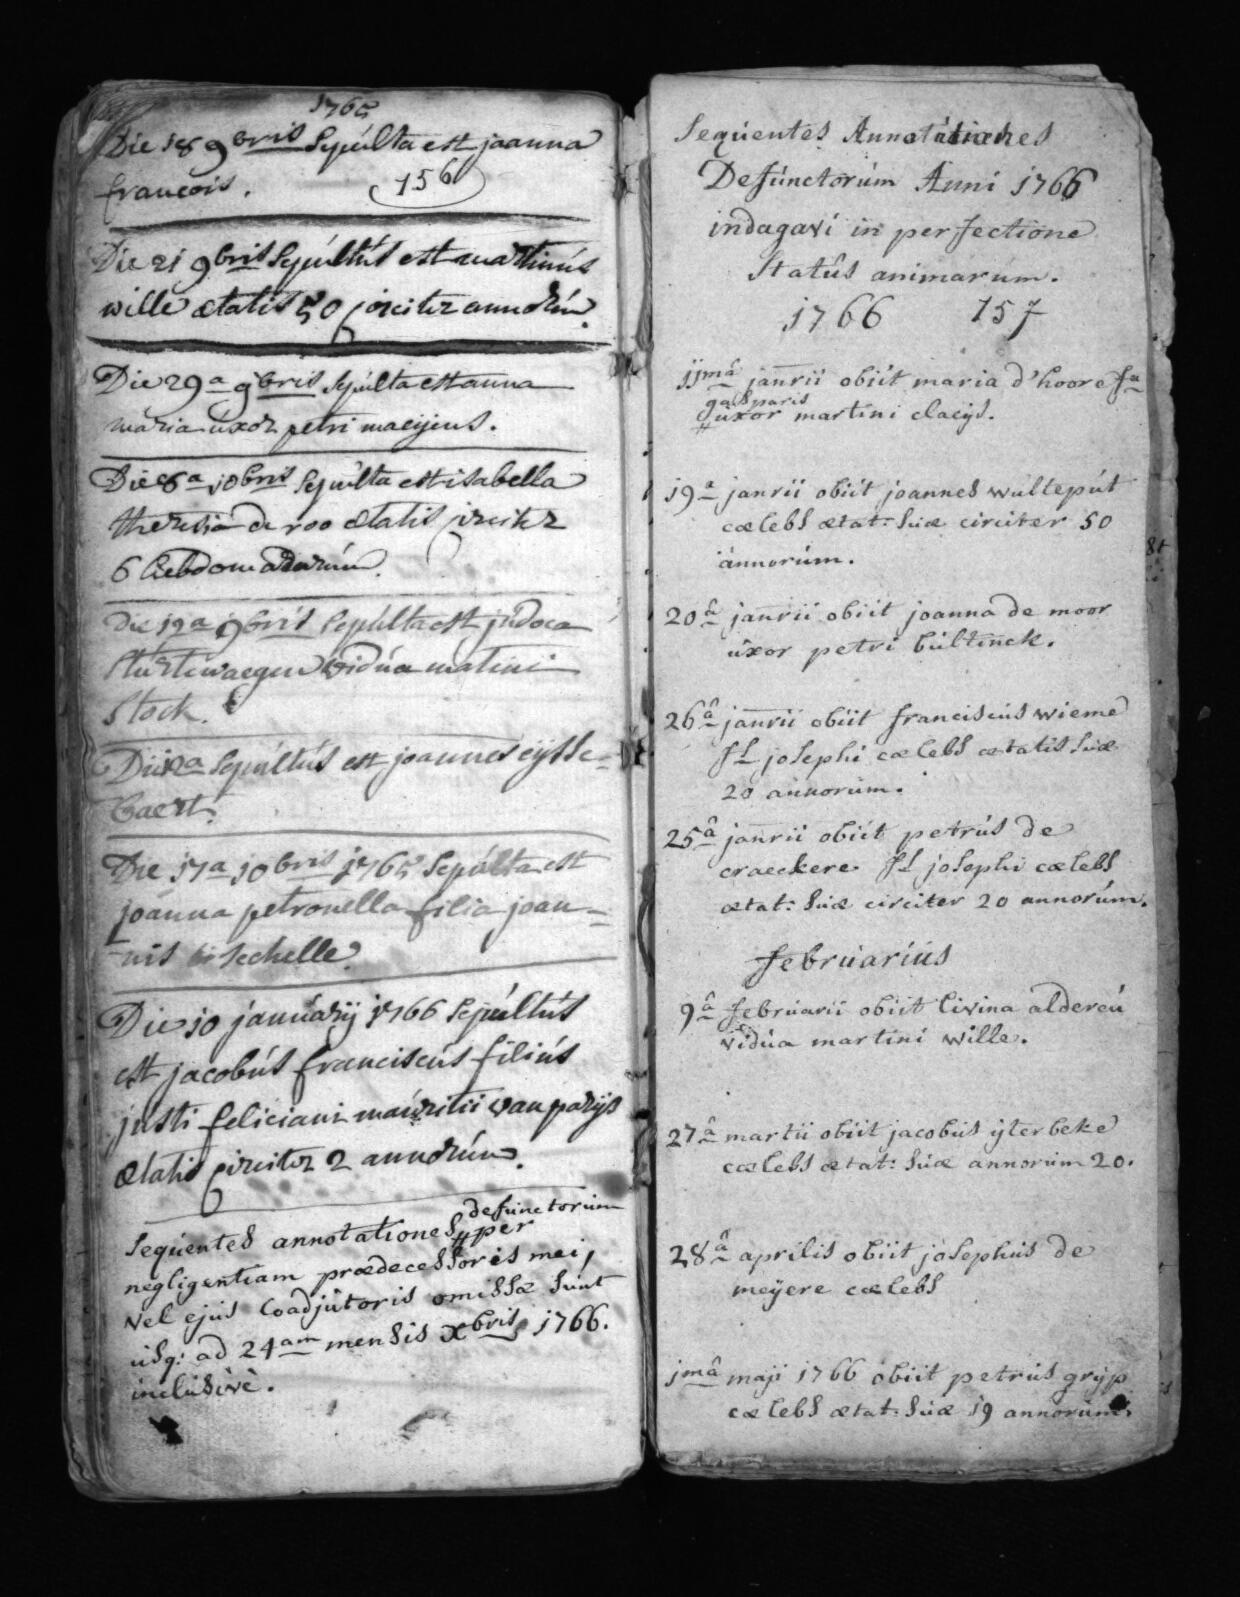 1765
Die 18 9bris Sepúlta est joanna
francois.
156
Die 21 9bris Sepúltús est martinús
wille ætatis 50 circiter annorúm.
Die 29a 9bris Sepúlta est anna
maria úxor petri maeyens.
Die 6a 10bris Sepúlta est isabella
theresia de roo ætatis circiter
6 hebdomadarúm.
Die 19a 9bris Sepúlta est júdoca
Sturtewaegen vidúa matini
Stock.
Die Sepúltús est joannes eysse-
baert.
Die 17a 10bris 1765 Sepúlta est
joanna petronella filia joan-
nis sechelle
Die 10 januárÿ 1766 Sepúltús
est jacobús franciscús filiús
justi feliciani maúritii van parijs
ætatis circiter 2 annorúm.
Seqúentes annotationes defunctorúm per
negligentiam prædecessoris mei,
vel ejús Coadjútoris omissæ Súnt
úsq: ad 24am mensis Xbris 1766.
inclúsivè.
Seqúentes Annotationes
Defúnctorúm Anni 1766
indagavi in perfectione
Statûs animarúm.
1766 157
jjmâ janrii obiit maria d'hoore fa
gasparis
úxor martini claeijs.
19a janrii obiit joannes wúltepút
cælebs ætat: súæ circiter 50
annorúm.
20â janrii obiit joanna de moor
úxor petri búltinck.
26â janrii obiit franciscús wieme
fs josephi cælebs ætatis súæ
20 annorúm.
25â janrii obiit petrús de
craeckere fs josephi cælebs
ætat: súæ circiter 20 annorúm.
febrúariús
9â febrúarii obiit livina aldereú
vidúa martini wille.
27â martii obiit jacobús ÿterbeke
cælebs ætat: súæ annorúm 20.
28â aprilis obiit josephús de
meÿere cælebs
jmâ maji 1766 obiit petrús grijp
cælebs ætat: súæ 19 annorúm.